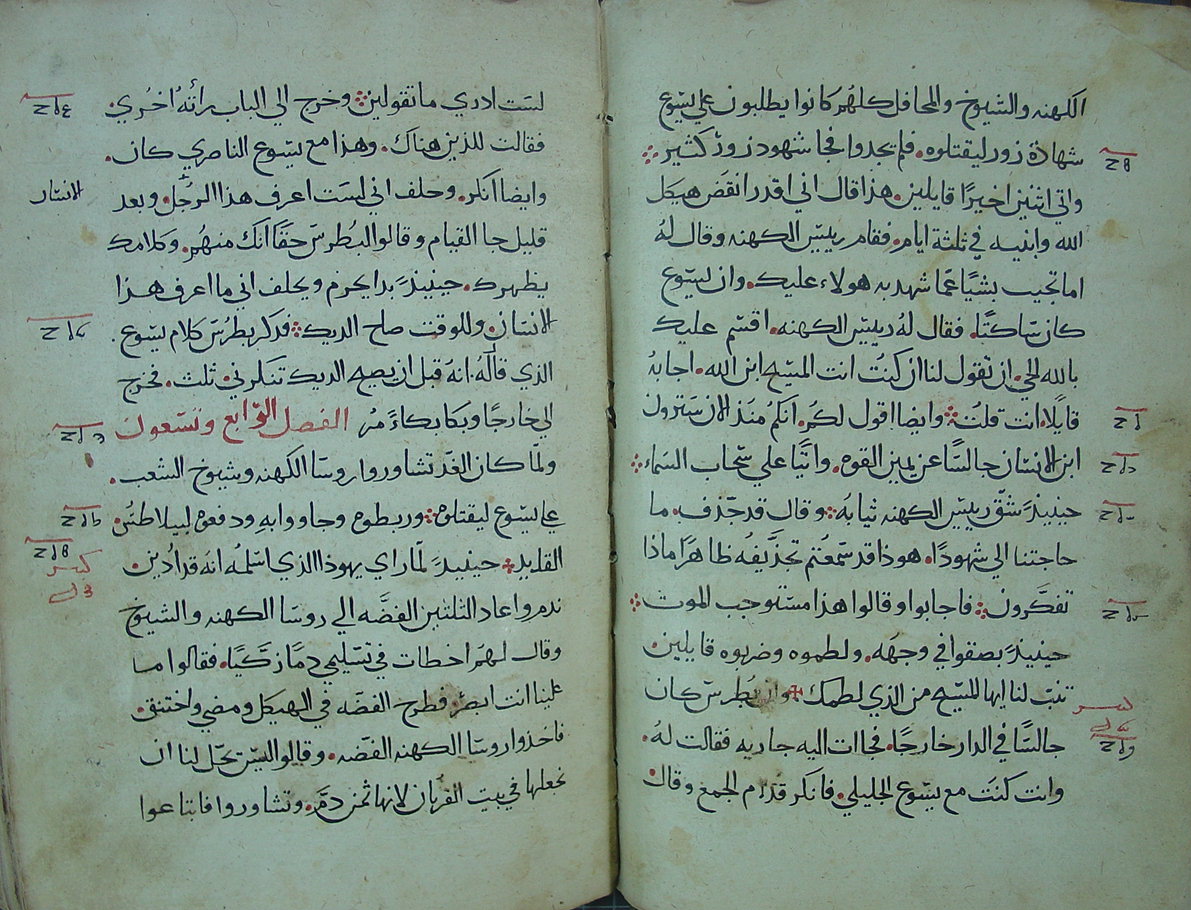 الكهنه والشيوخ والمحافل كلهم كانوا يطلبون علي يسوع
شهادة زور ليقتلوه. فلم يجدوا فجا شهود زور كثير
واتي اثنين اخيرًا قايلين. هذا قال اني اقدر انقض هيكل
الله وابنيه في ثلثة ايام. فقام رييس الكهنه وقال لهُ
اما تجيب بشيًا عمّا شهد به هولاء عليك. وان يسوع
كان ساكتًا. فقال لهُ رييس الكهنه. اقسم عليك
بالله الحي. ان تقول لنا ان كنتُ انت المسيح ابن الله. اجابهُ
قايلًا. انت قلتَ وايضا اقول لكم. انكم منذ الان سترون
ابن الانسان جالسًا عن يمين القوه. واتيًا علي سحاب السماء
حينيذٍ شق رييس الكهنه ثيابهُ وقال قد جذف. ما
حاجتنا الي شهودًا. هوذا قد سمعتم تجذيفهُ ظاهرًا ماذا
تفكرون فاجابوا وقالوا هذا مستوجب الموت
حينيذٍ بصقوا في وجهه. ولطموه وضربوه قايلين
تنبّ لنا ايها المسيح من الذي لطمك وان بطرس كان
جالسًا في الدار خارجًا. فجاات اليه جاريه فقالت لهُ.
وانت كنتَ مع يسوع الجليلي. فانكر قدام الجمع وقال
لست ادري ما تقولين وخرج الي الباب راتهُ اخري
فقالت للذين هناك. وهذا مع يسوع الناصري كان.
وايضا انكر. وحلف اني لست اعرف هذا الرجل. وبعد
الانسان
قليل جا القيام وقالوا لبطرس حقًا انك منهم. وكلامك
يظهرك. حينيذٍ بدا يحرم ويحلف اني ما اعرف هذا
الانسان. وللوقت صاح الديك فذكر بطرس كلام يسوع
الذي قاله. انه قبل ان يصيح الديك تنكرني ثلث. فخرج
الي خارجًا وبكا بكاءً مرُ الفصل الرابع وتسعون
ولما كان الغد تشاوروا روسا الكهنه وشيوخ الشعب
علي يسوع ليقتلوه وربطوه وجاووا به ودفعوه لبيلاطس
القايد حينيذٍ لما راي يهوذا الذي اسلمه انه قد ادين
ندم. واعاد الثلثين الفضّه الي روسا الكهنه والشيوخ
وقال لهم اخطات في تسليمي دمًا زكيًا. فقالوا ما
علينا انت ابصر. فطرح الفضه في الهيكل ومضي واختنق.
فاخذوا روسا الكهنه الفضه. وقالوا ليس يحل لنا ان
نجعلها في بيت القربان لانها ثمن دمٍ. وتشاوروا فابتاعوا